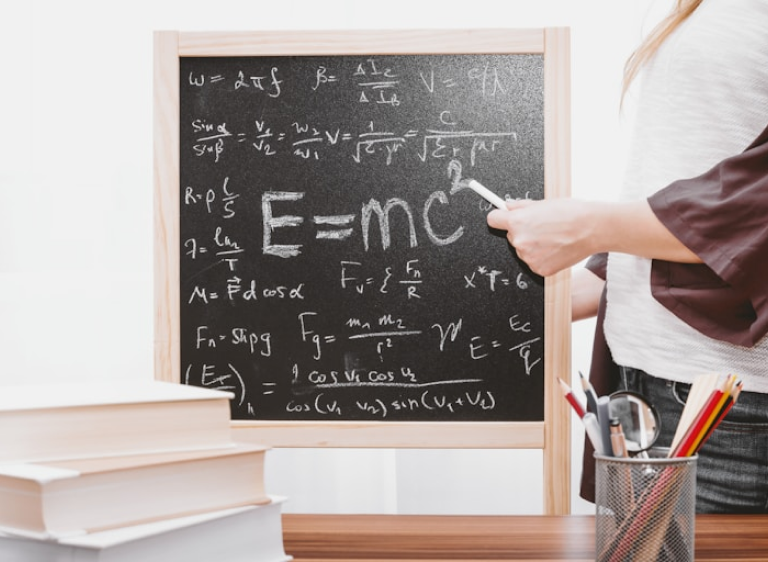 ω = 2πf β = ΔI₂/ΔI_B V =
sin α/sin β = v₁/v₂ = w₂/w₁ V = 1/√ε·μ = c/√εr μr
R = ρ l/S
E = mc²
λ = ln₂/T
F_v = { F_n/R x*T = 6
M = F⃗ d cos α
F_n = Shρg F_g = m₁ m₂/r² E = E_c/q
= 2 cos v₁ cos v₂/cos(v₁ v₂) sin(v₁+v₂)